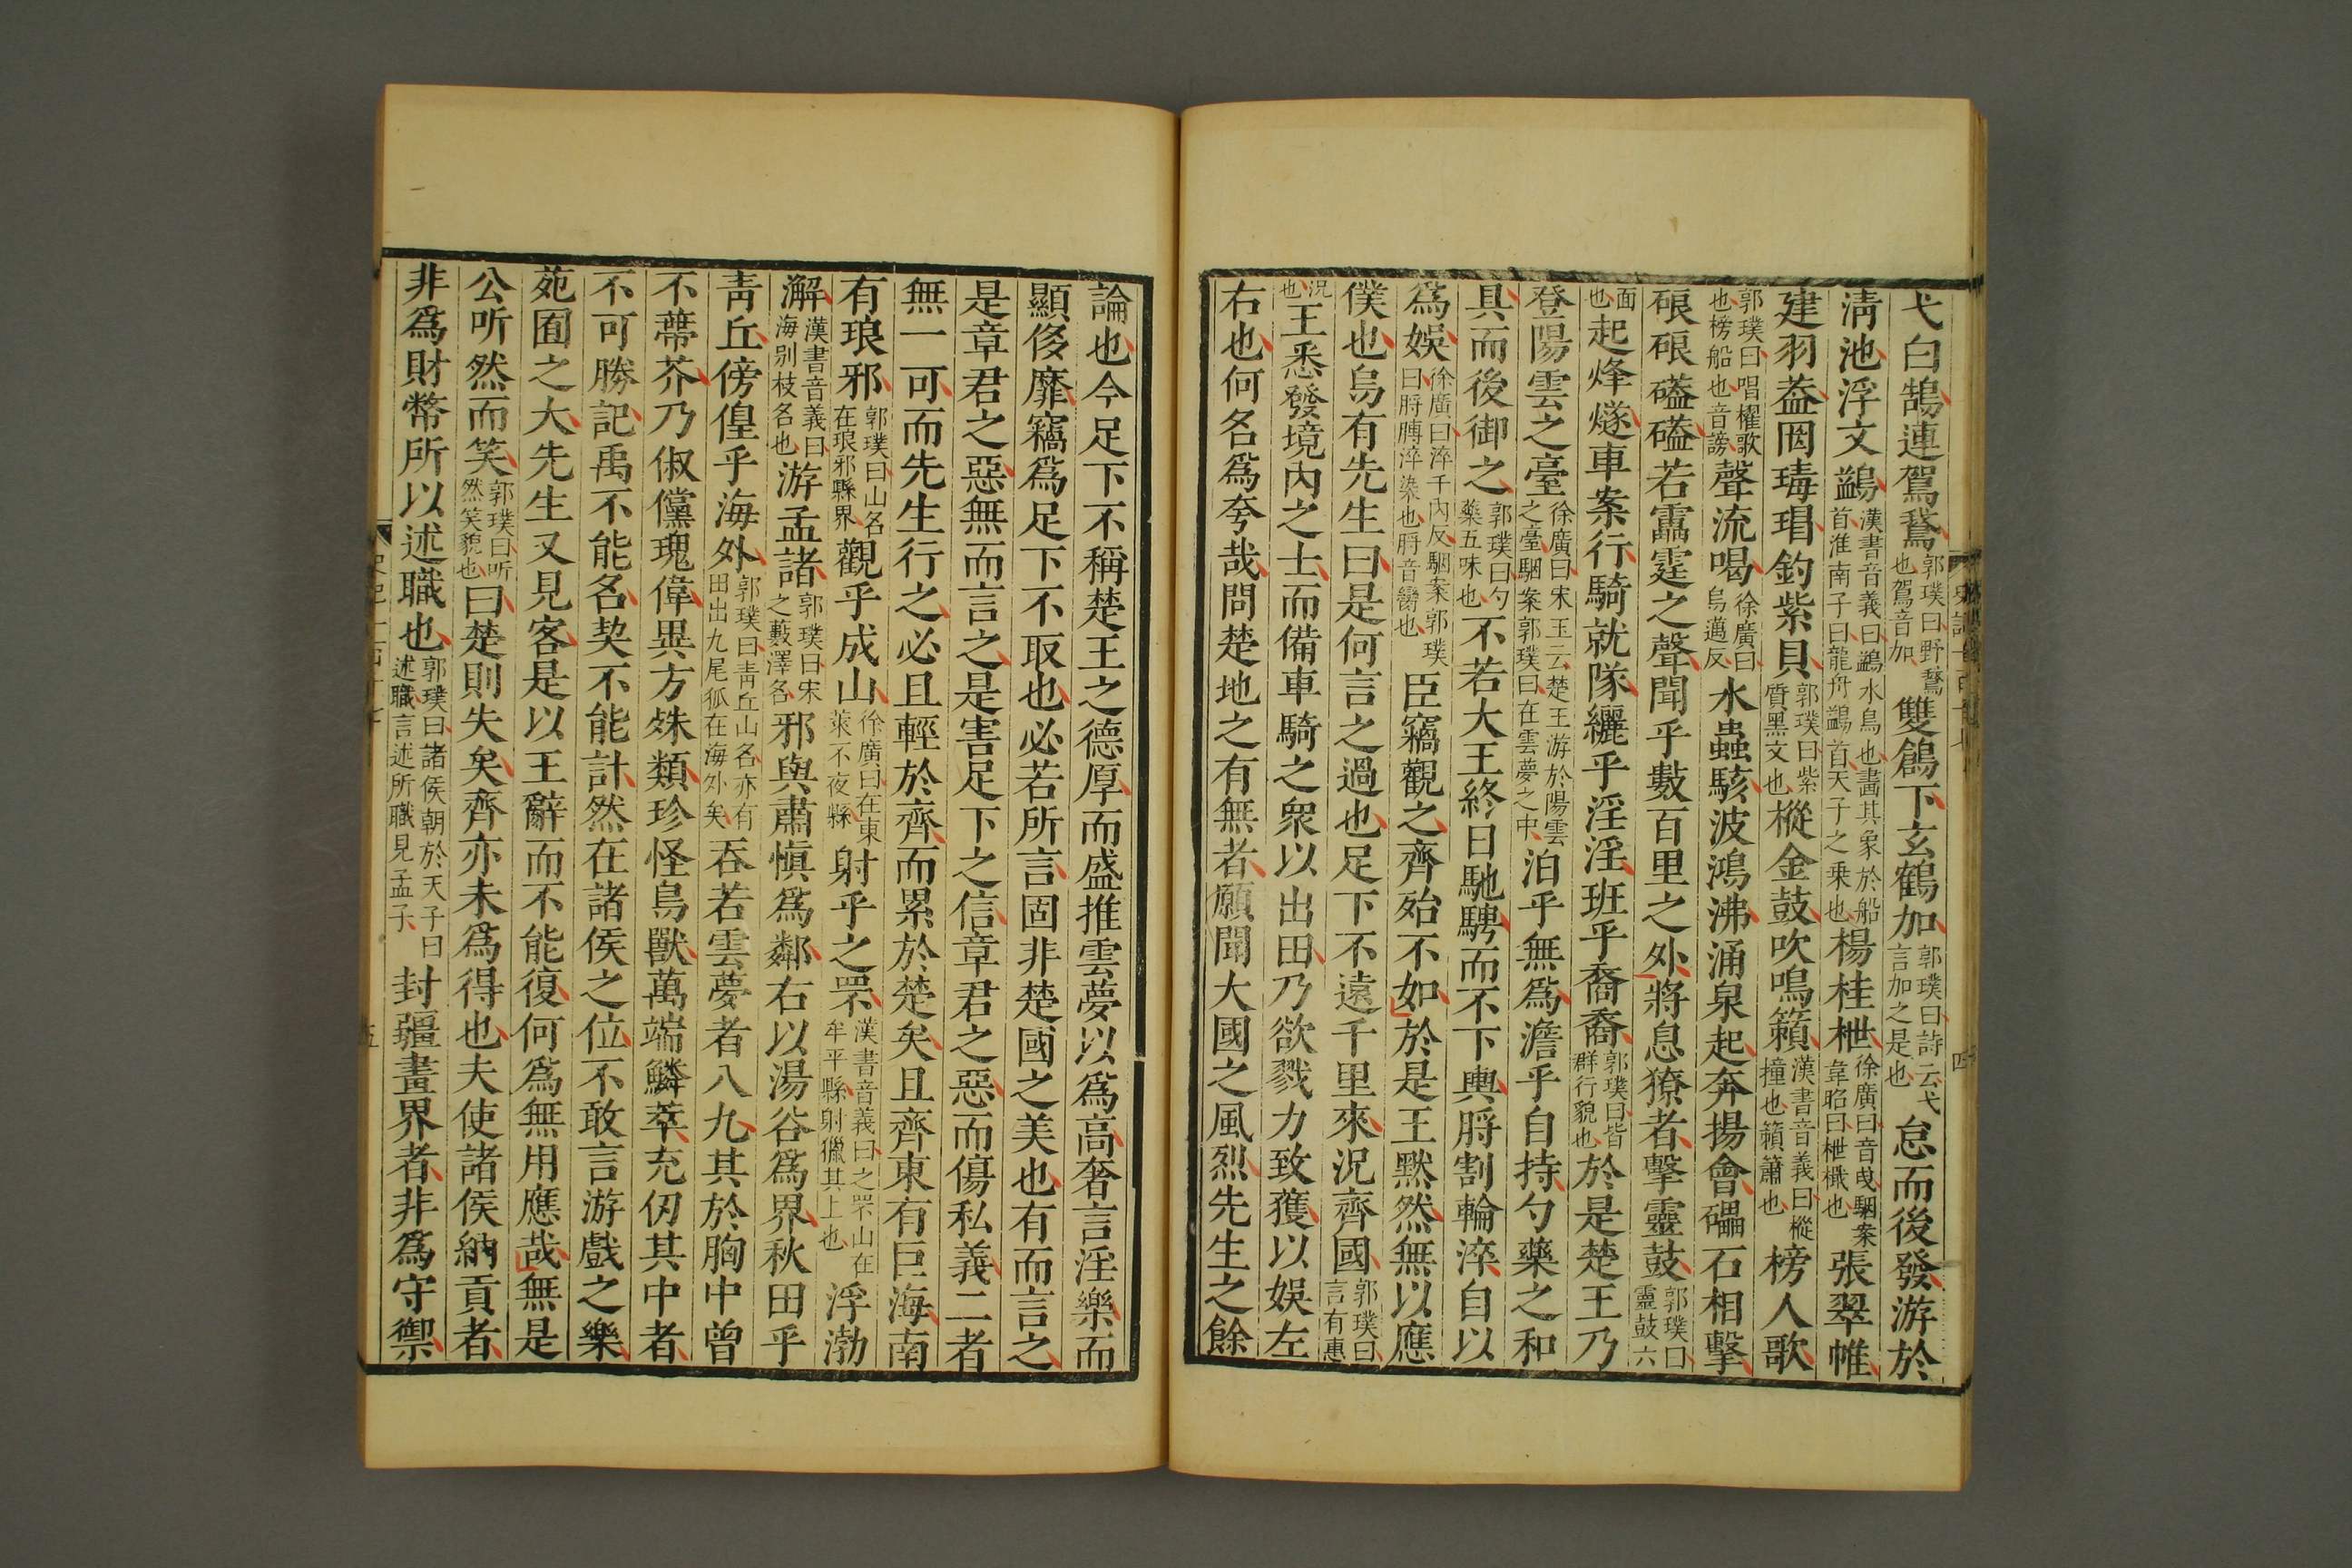 弋白鵠連駕鵞郭璞曰野鵞也駕音加雙鶬下玄鶴加郭璞曰詩云弋言加之是也怠而後發游於
清池浮文鷁漢書音義曰鷁水鳥也畵其象於船首淮南子曰龍舟鷁首天子之乗也楊桂枻徐廣曰音曳駰案韋昭曰枻檝也張翠帷
建羽葢罔瑇瑁釣紫貝郭璞曰紫質黑文也樅金鼓吹鳴籟漢書音義曰樅撞也籟簫也榜人歌
郭璞曰唱櫂歌也榜船也音謗聲流喝徐廣曰烏邁反水蟲駭波鴻沸涌泉起奔揚會礧石相擊
硠硠礚礚若靁霆之聲聞乎數百里之外將息獠者擊靈鼓郭璞曰靈鼓六
面也起烽燧車案行騎就隊纚乎淫淫班乎裔裔郭璞曰皆群行貌也於是楚王乃
登陽雲之臺徐廣曰宋玉云楚王游於陽雲之臺駰案郭璞曰在雲夢之中泊乎無爲澹乎自持勺藥之和
具而後御之郭璞曰勺藥五味也不若大王終日馳騁而不下輿脟割輪淬自以
爲娛徐廣曰淬千內反駰案郭璞曰脟膊淬染也脟音臠也臣竊觀之齊殆不如於是王黙然無以應
僕也烏有先生曰是何言之過也足下不遠千里來況齊國郭璞曰言有惠
況也王悉發境內之士而備車騎之衆以出田乃欲戮力致獲以娛左
右也何名爲夸哉問楚地之有無者願聞大國之風烈先生之餘
論也今足下不稱楚王之德厚而盛推雲夢以爲高奢言淫樂而
顯侈靡竊爲足下不取也必若所言固非楚國之美也有而言之
是章君之惡無而言之是害足下之信章君之惡而傷私義二者
無一可而先生行之必且輕於齊而累於楚矣且齊東有巨海南
有琅邪郭璞曰山名在琅邪縣界觀乎成山徐廣曰在東萊不夜縣射乎之罘漢書音義曰之罘山在牟平縣射獵其上也浮渤
澥漢書音義曰海别枝名也游孟諸郭璞曰宋之藪澤名邪與肅愼爲鄰右以湯谷爲界秋田乎
靑丘傍偟乎海外郭璞曰靑丘山名亦有田出九尾狐在海外矣吞若雲夢者八九其於胸中曾
不蔕芥乃俶儻瑰偉異方殊類珍怪鳥獸萬端鱗萃充仞其中者
不可勝記禹不能名契不能計然在諸侯之位不敢言游戲之樂
苑囿之大先生又見客是以王辭而不能復何爲無用應哉無是
公听然而笑郭璞曰听然笑貌也曰楚則失矣齊亦未爲得也夫使諸侯納貢者
非爲財幣所以述職也郭璞曰諸侯朝於天子曰述職言述所職見孟子封疆畫界者非爲守禦